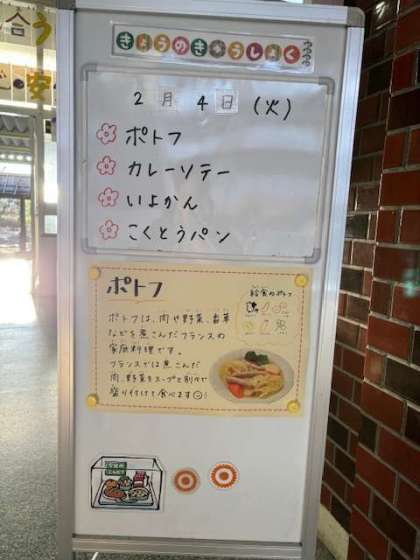 合う
きょうのきゅうしょく
2月4日(火)
ポトフ
カレーソテー
いよかん
こくとうパン
ポトフ
給食のポトフ
ポトフは、肉や野菜、香草
などを煮こんだフランスの
家庭料理です。
フランスでは煮こんだ
肉、野菜をスープと別々で
盛り付けて食べます